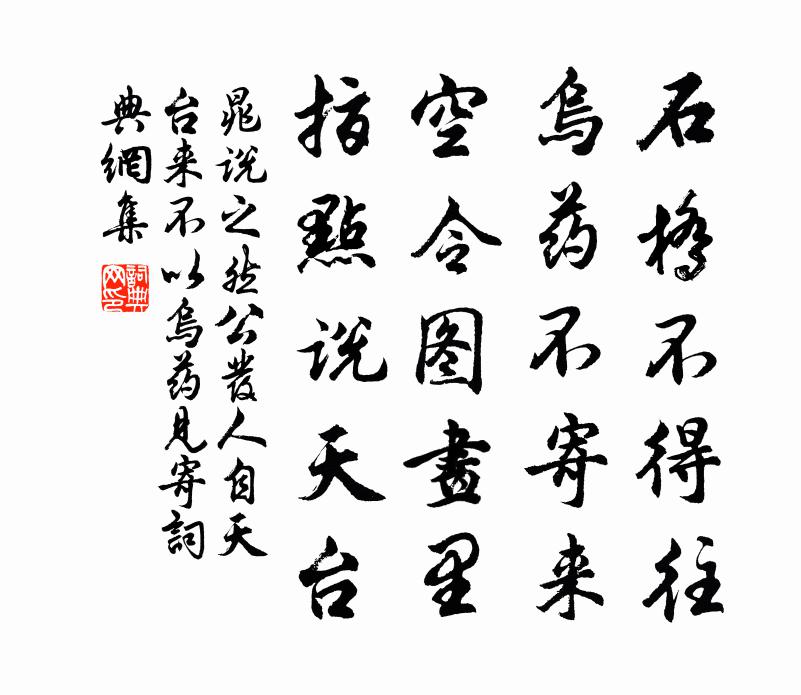 石桥不得往
烏药不寄来
空令图畫里
指點说天台
晁说之然公發人自天
台来不以烏药见寄詞
典網集
詞典
网印